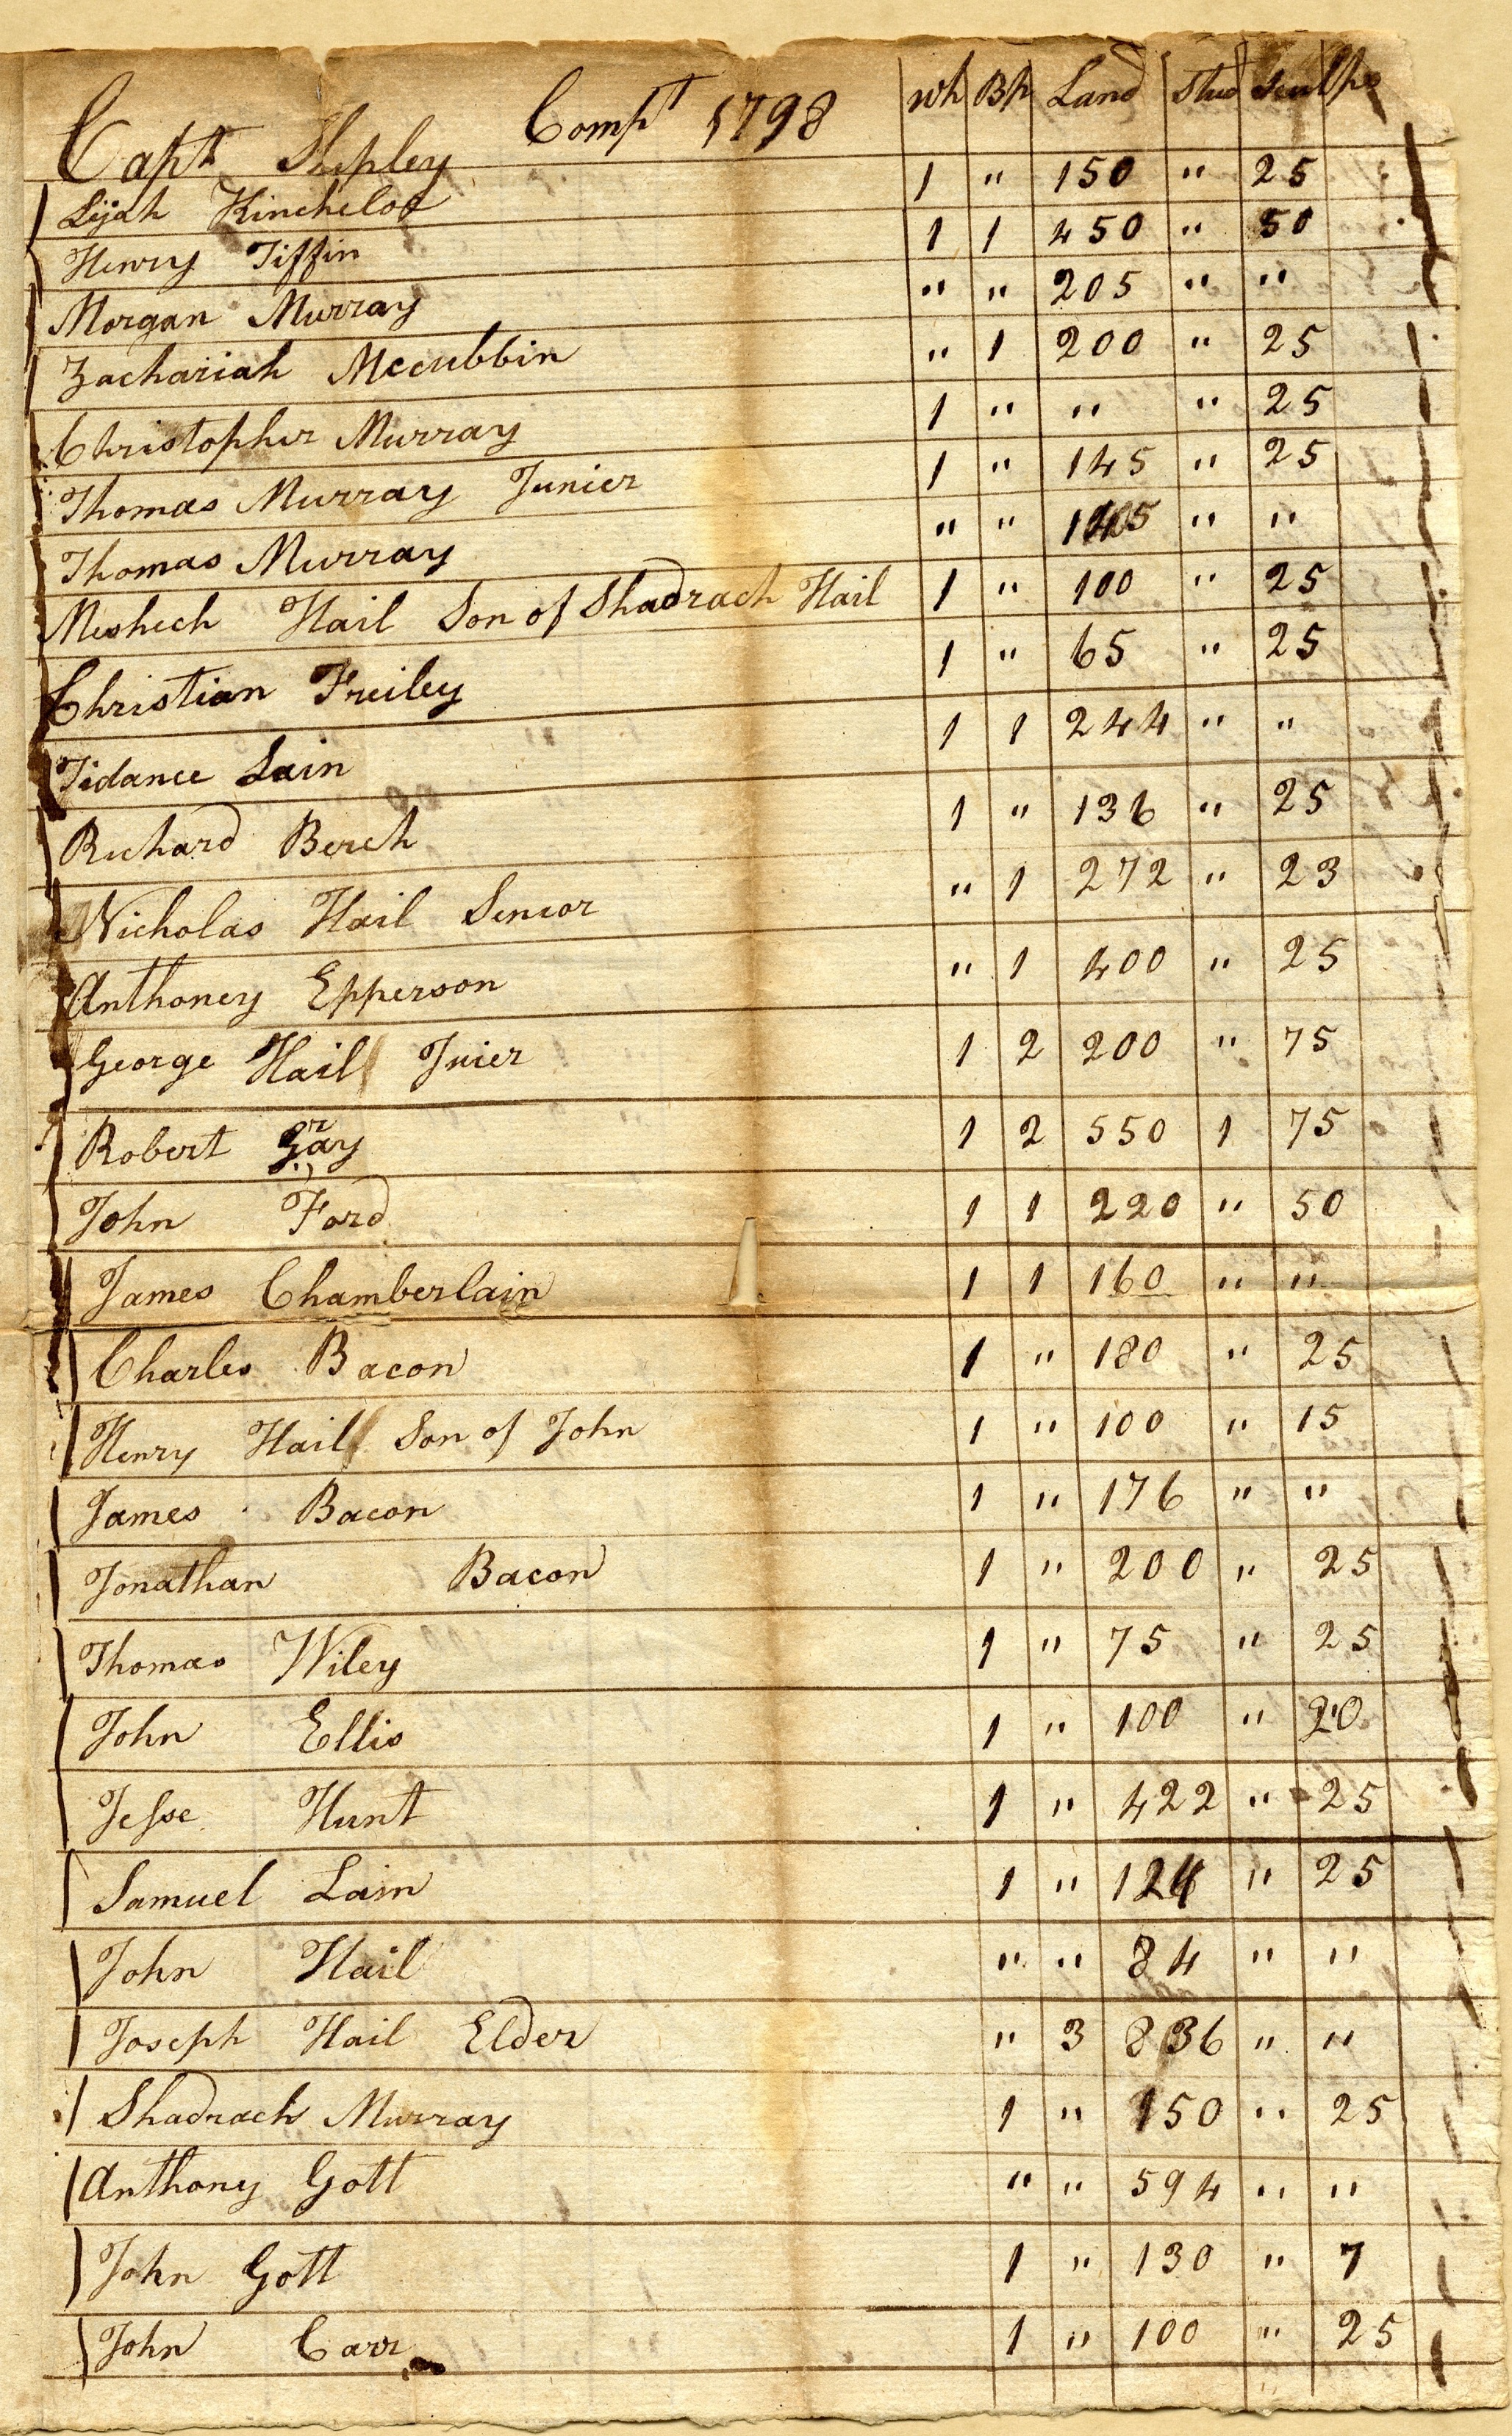 Capt Shipley Compt 1798 Wh Bh Land Stud
Lijah Kincheloe 1 " 150 " 25
Henry Tiffin 1 1 450 " 50
Morgan Murray " " 205 " "
Zachariah Mccubbin " 1 200 " 25
Christopher Murray 1 " " " 25
Thomas Murray Junier 1 " 145 " 25
Thomas Murray " " " "
Meshech Hail Son of Shadrach Hail 1 " 100 " 25
Christian Freiley 1 " 65 " 25
Tidance Lain 1 1 244 " "
Richard Berch 1 " 136 " 25
Nicholas Hail Senior " 1 272 " 23
Anthoney Epperson " 1 400 " 25
George Hail Juier 1 2 200 " 75
Robert Gray 1 2 550 1 75
John Ford 1 1 220 " 50
James Chamberlain 1 1 160 " "
Charles Bacon 1 " 180 " 25
Henry Hail Son of John 1 " 100 " 15
James Bacon 1 " 176 " "
Jonathan Bacon 1 " 200 " 25
Thomas Wiley 1 " 75 " 25
John Ellis 1 " 100 " 20
Jesse Hunt 1 " 422 " 25
Samuel Lain 1 " 124 " 25
John Hail " " 84 " "
Joseph Hail Elder " 3 836 " "
Shadrach Murray 1 " 150 " 25
Anthony Gott " " 594 " "
John Gott 1 " 130 " 7
John Carr 1 " 100 " 25